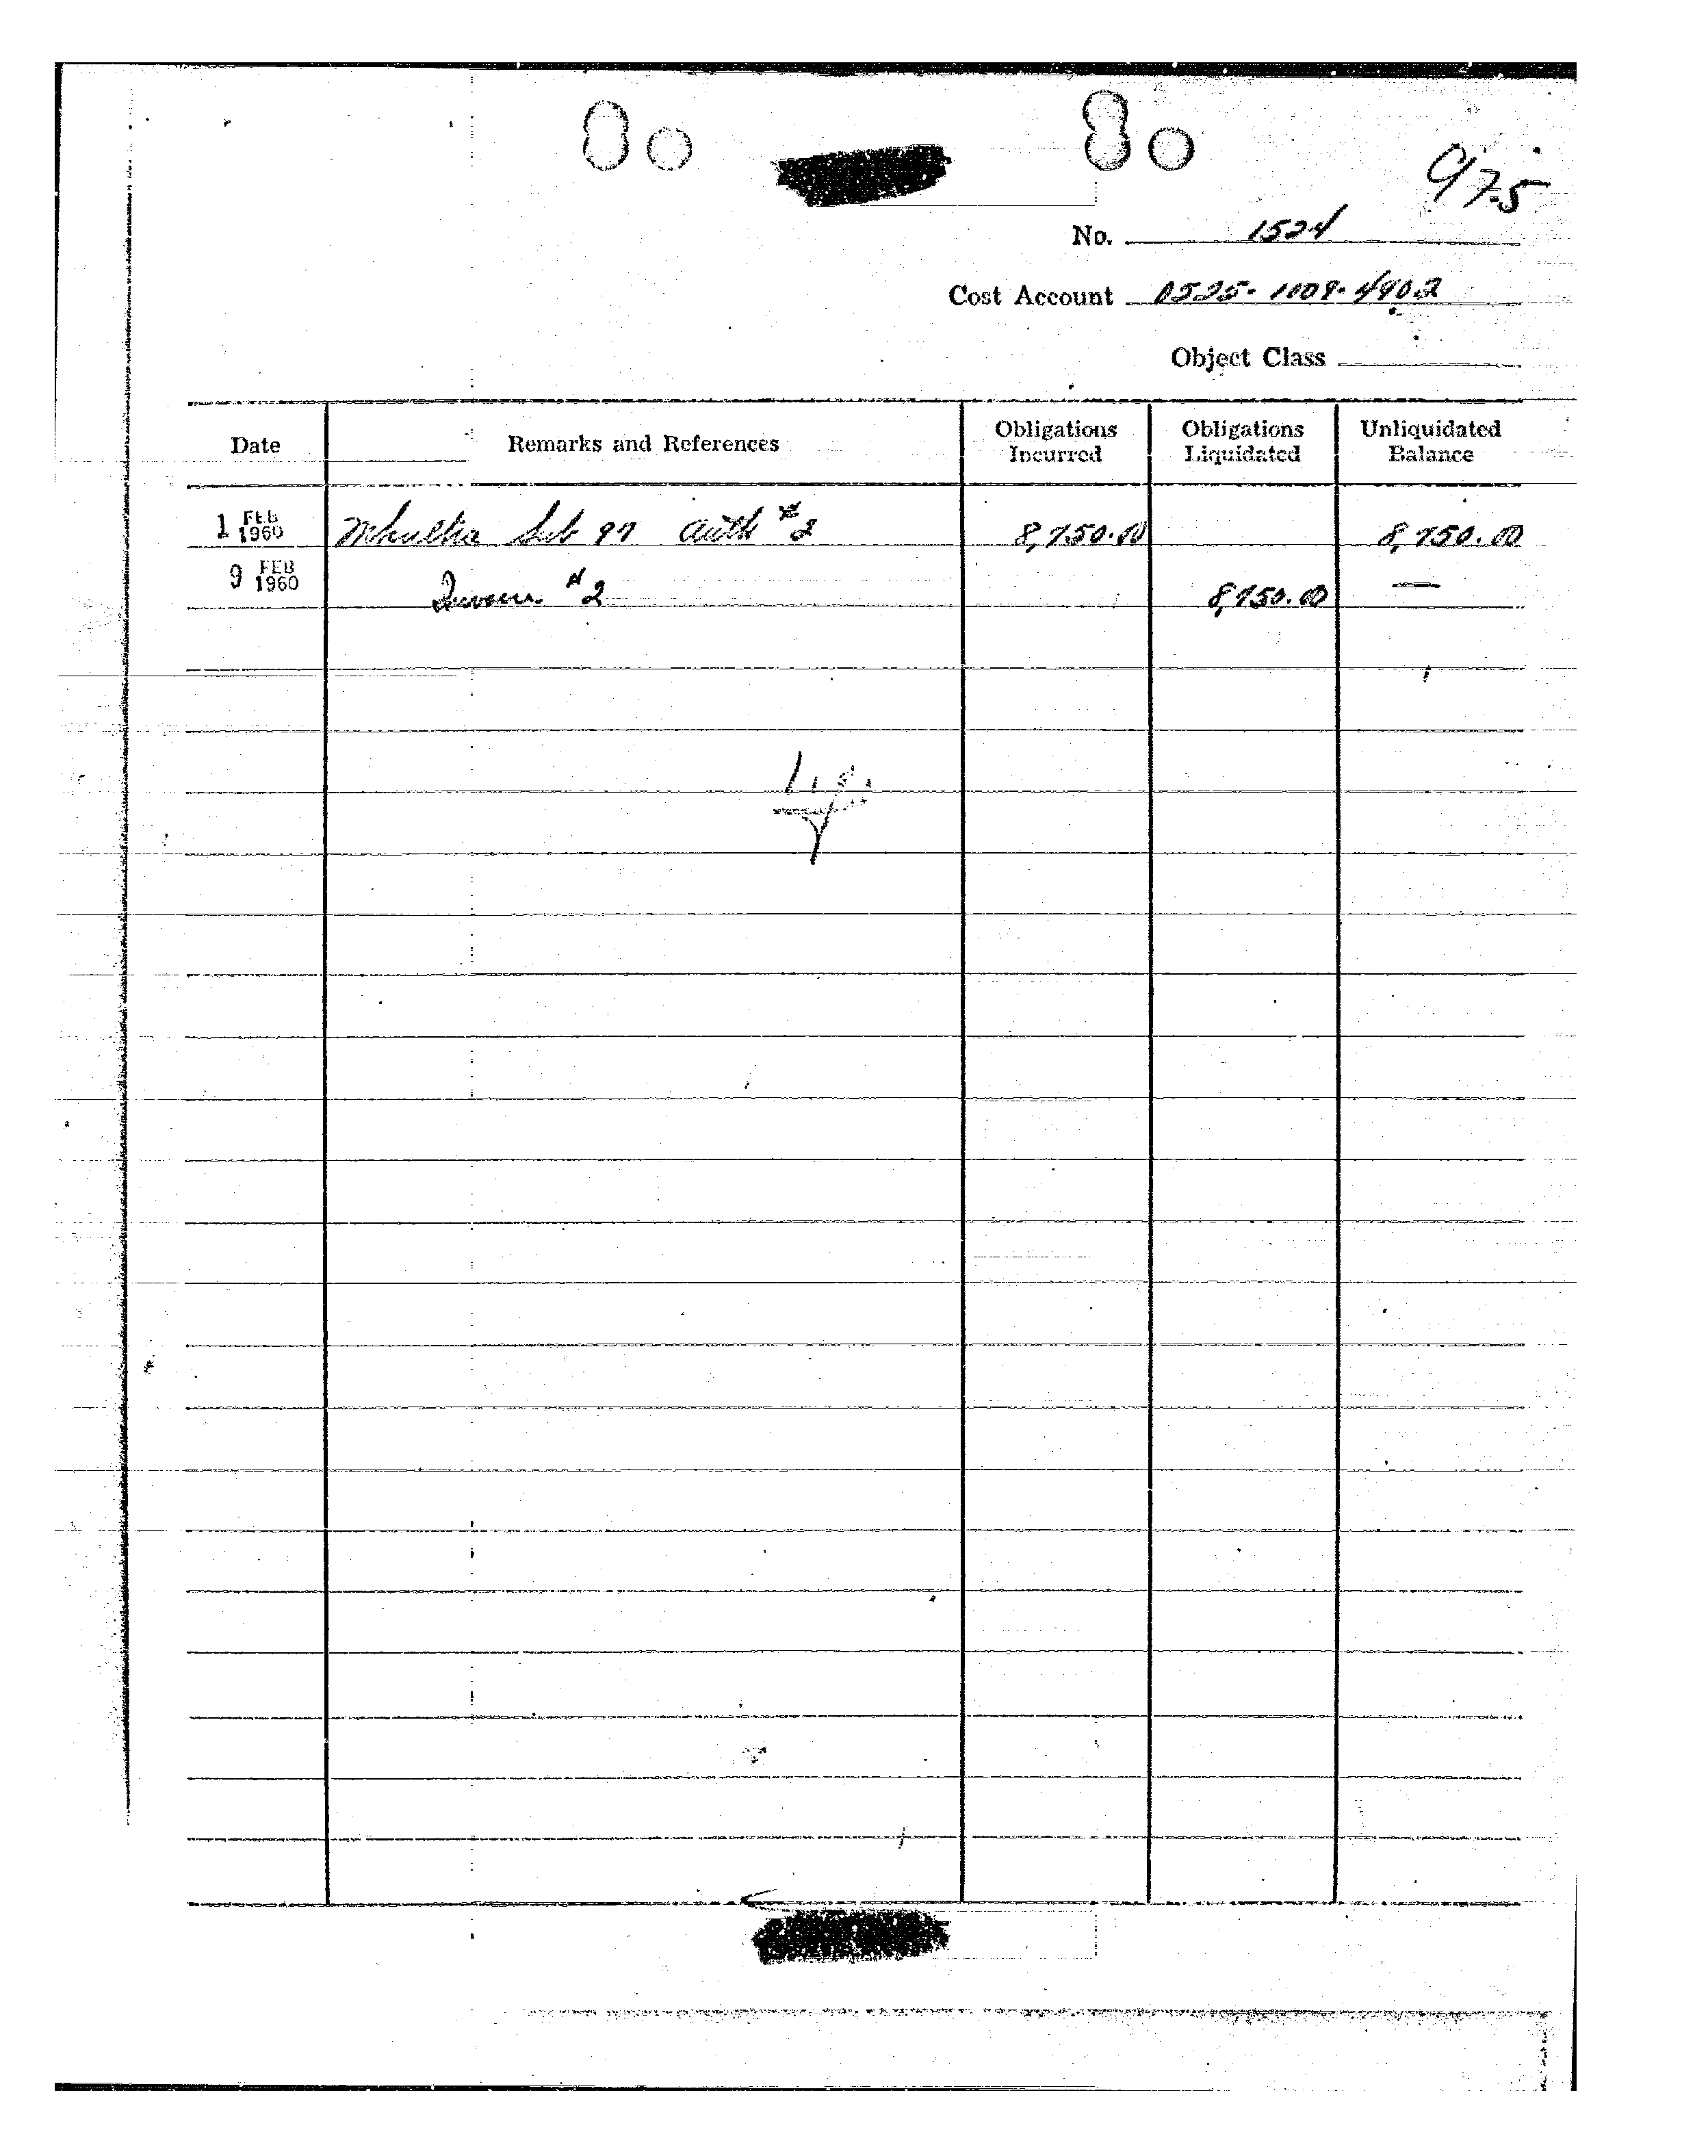 97-5
No. 1524
Cost Account 0525-1009-4902
Object Class
Date Remarks and References Obligations Incurred Obligations Liquidated Unliquidated Balance
1 FEB 1960 Mkultra Sub 97 Auth #2 8,750.00 8,750.00
9 FEB 1960 Invoice #2 8,750.00 —